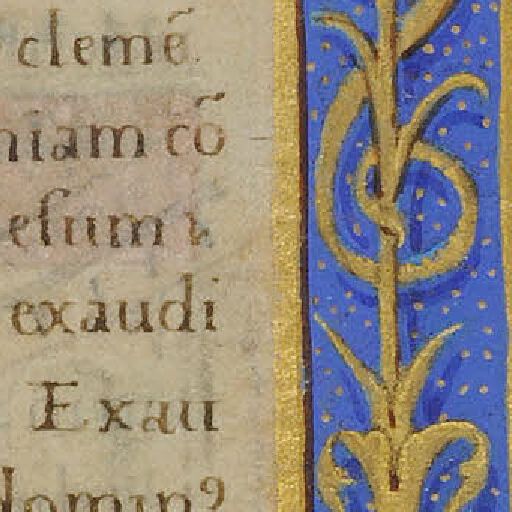 clemē
niam cō
esum ⁊
exaudi
Exau
domin⁹